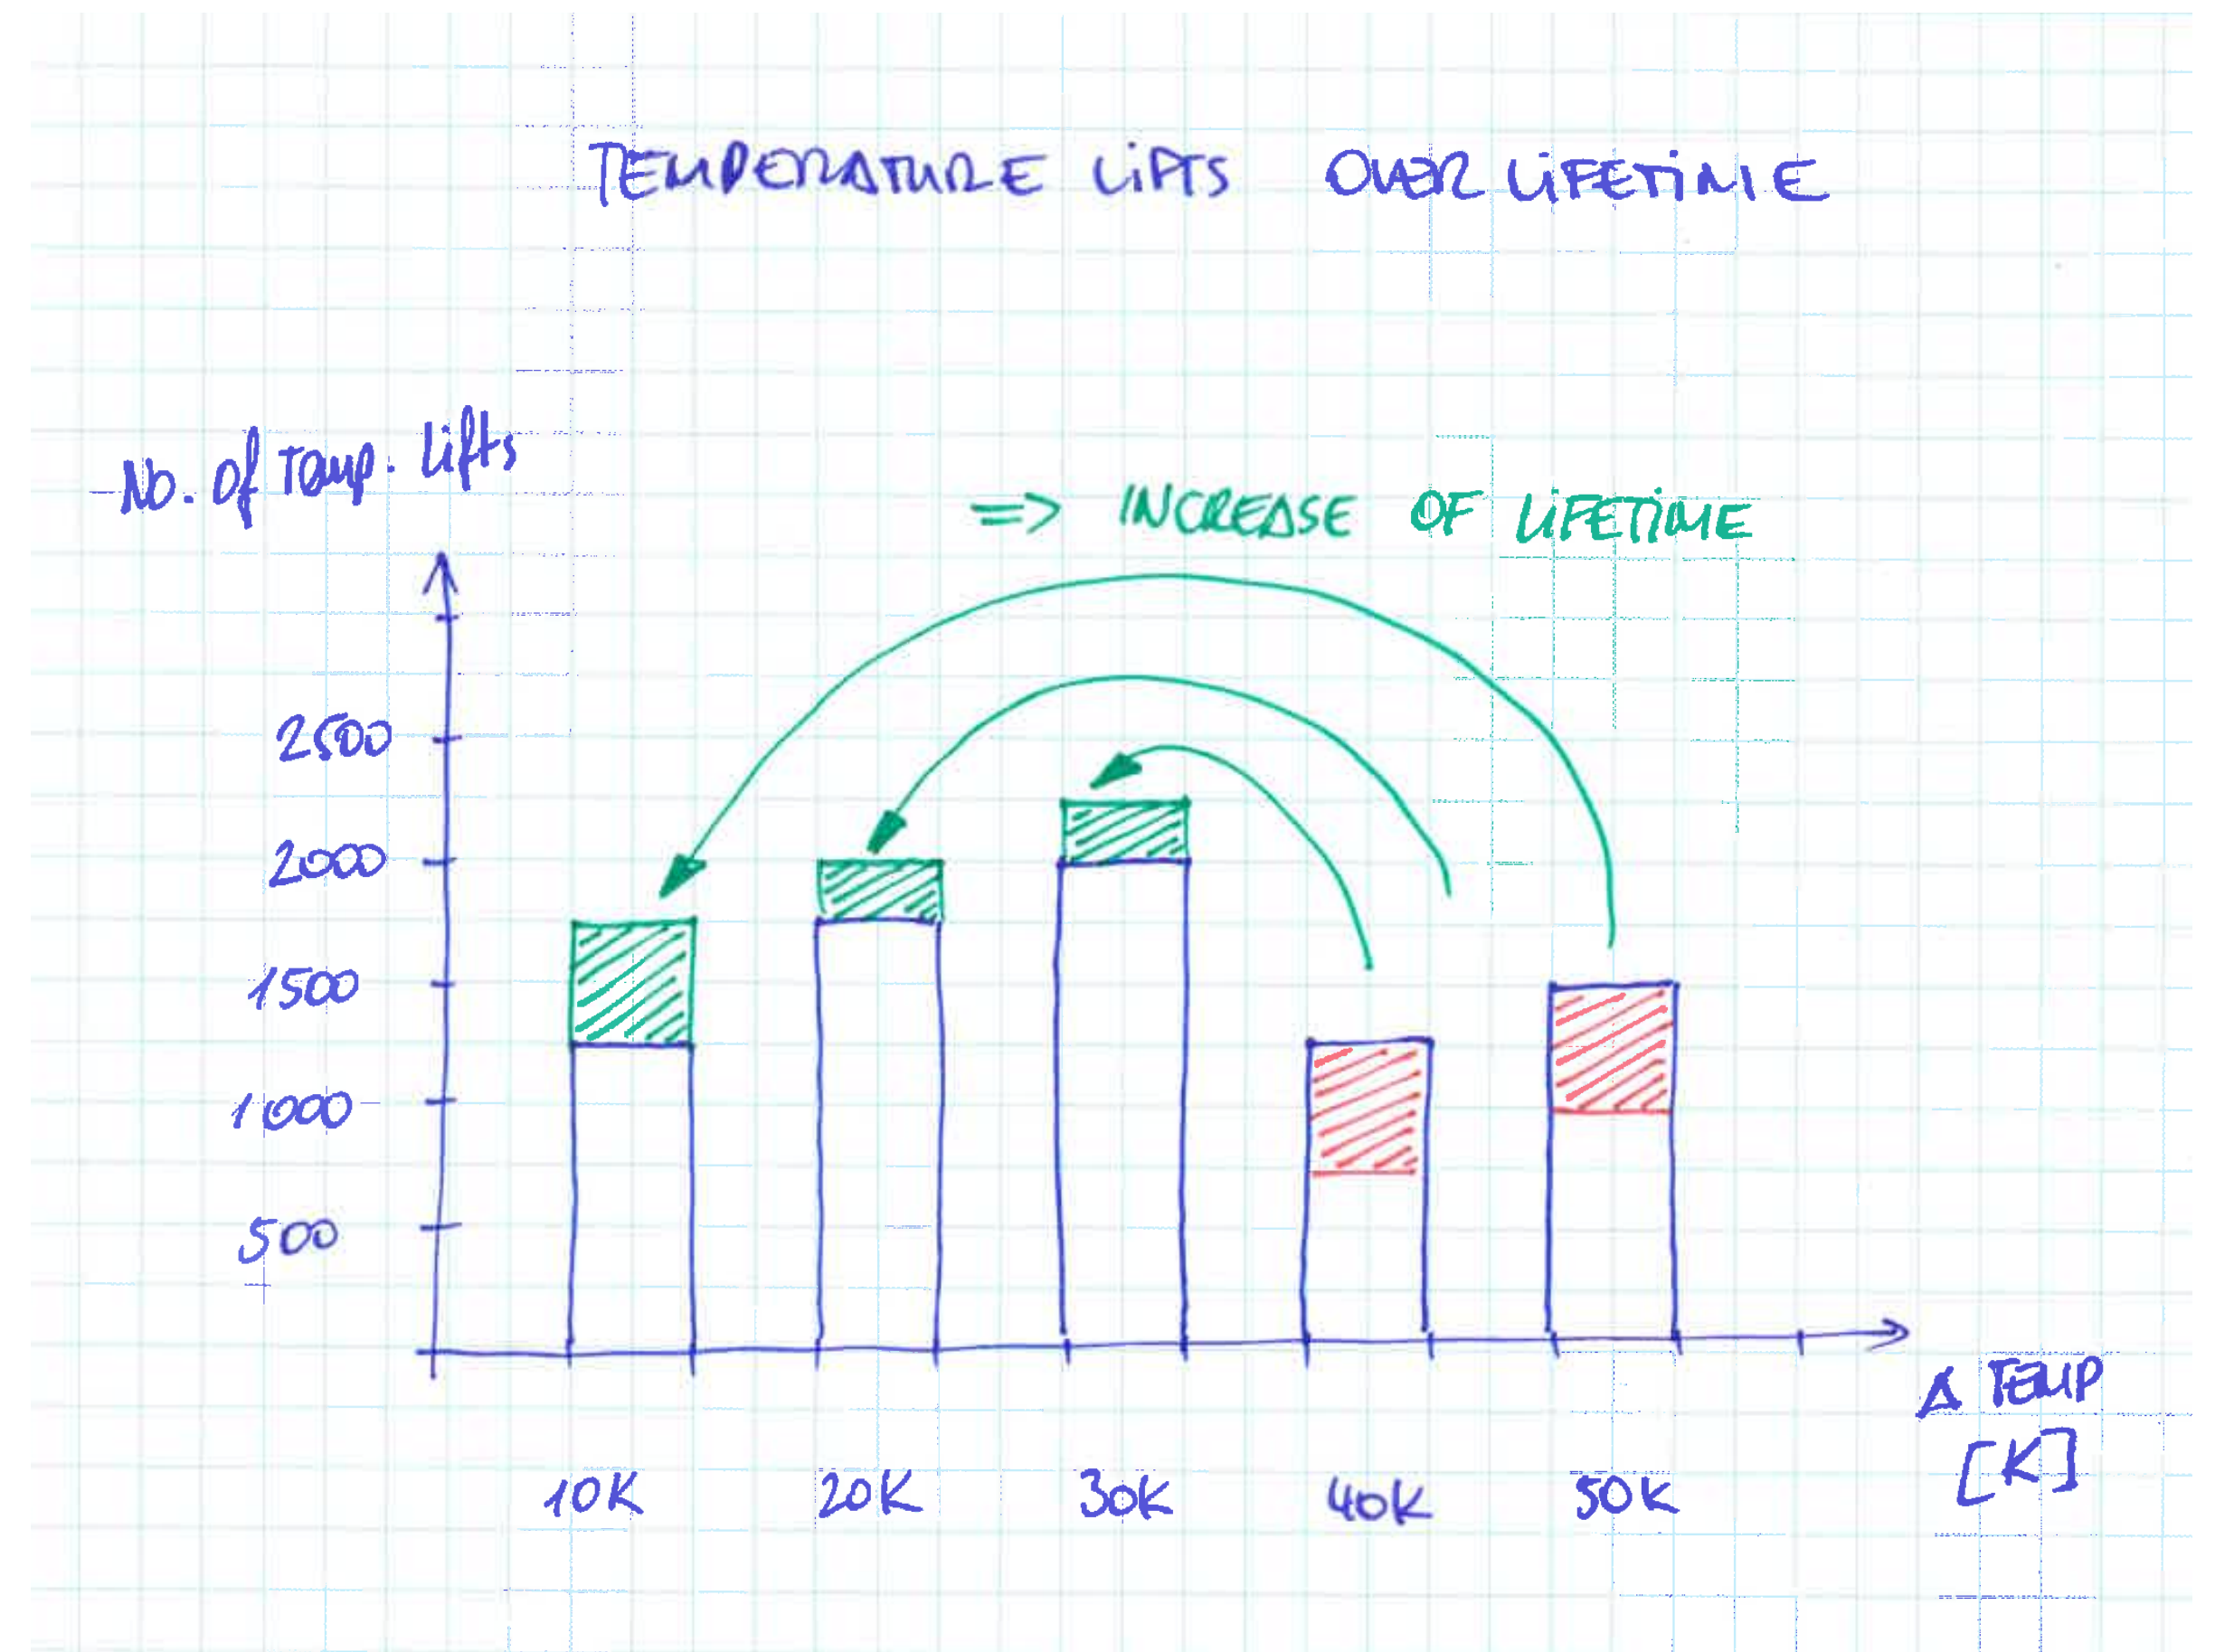 TEMPERATURE LiFTS OVER LiFETiME
No. Of Temp. Lifts
=> INCREASE OF LiFETiME
2500
2000
1500
1000
500
Δ TEMP
[K]
10K 20K 30K 40K 50K